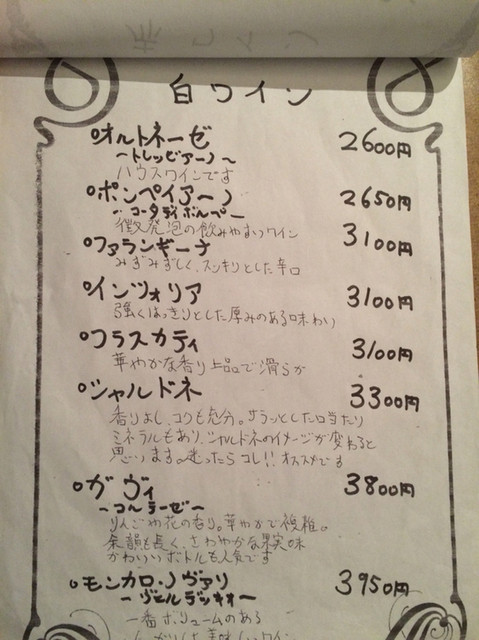 白ワイン
オルトネーゼ 2600円
〜トレッビアーノ〜
ハウスワインです
ポンペイアーノ 2650円
コーダディボルペー
微発泡の飲みやすいワイン
ファランギーナ 3100円
みずみずしく、スッキリとした辛口
インツォリア 3100円
強くはっきりとした厚みのある味わい
フラスカティ 3100円
華やかな香り上品で滑らか
シャルドネ 3300円
香りよし、コクも充分。サラッとした口当たり
ミネラルもあり、シャルドネのイメージが変わると
思います。迷ったらコレ!!オススメです
ガヴィ 3800円
〜コルテーゼ〜
りんごや花の香り。華やかで複雑。
余韻も長く、さわやかな果実味
かわいいボトルも人気です
モンカロ・ノヴァリ 3950円
〜ヴェルデッキオ〜
一番ボリュームのある